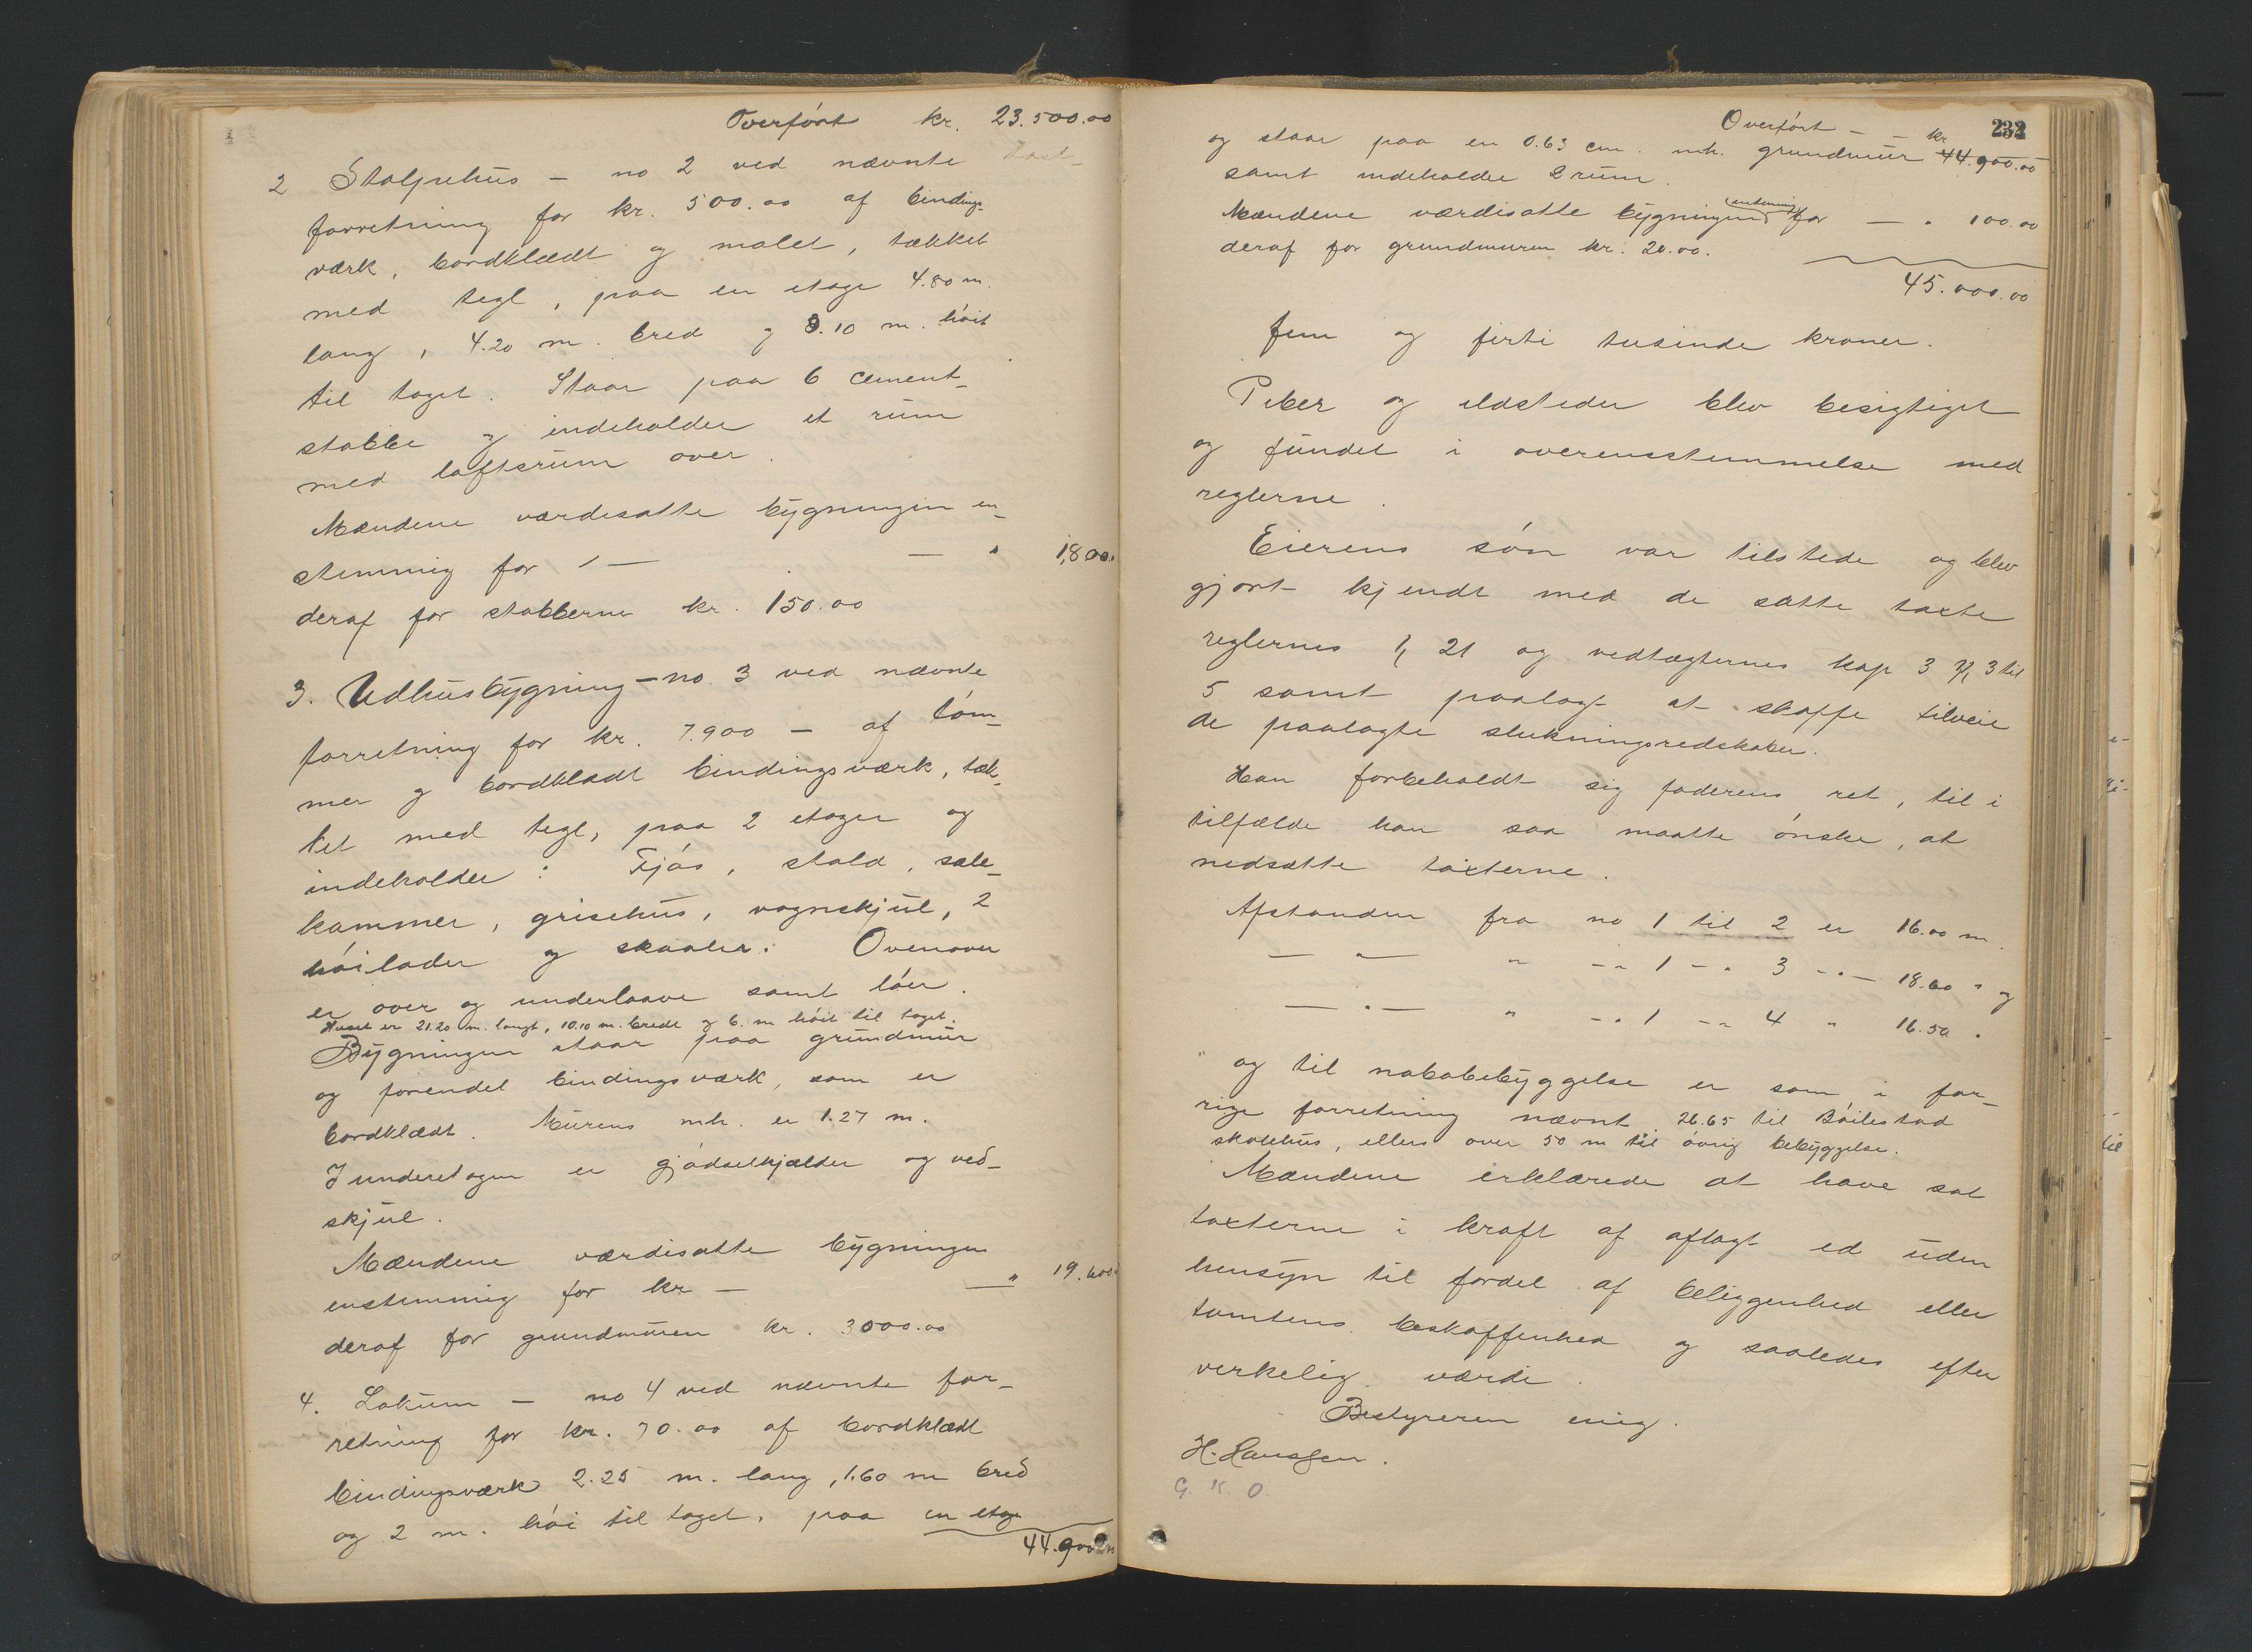 Overført kr. 23.500.00
2 Stolpehus - no 2 ved nævnte taxt-
forretning for kr. 500.00 af bindings-
værk, bordklædt og malet, tækket
med tegl, paa en etage 4.80 m.
lang, 4.20 m. bred og 3.10 m. høit
til taget. Staar paa 6 cement-
stabbe og indeholder et rum
med loftsrum over.
Mændene værdisatte bygningen en-
stemmig for - — " 1,800.
deraf for stabberne kr. 150.00
3. Udhusbygning - no. 3 ved nævnte
forretning for kr. 7.900 - af tøm-
mer og bordklædt bindingsværk, tæk-
ket med tegl, paa 2 etager og
indeholder: Fjøs, stald, sæle-
kammer, grisehus, vognskjul, 2
høilader og skaaler. Ovenover
er over og underlaave samt løer.
Huset er 21.20 m. langt, 10.10 m. bredt og 6. m høit til taget.
Bygningen staar paa grundmur
og forendel bindingsværk, som er
bordklædt. Murens mh. er 1.27 m.
I underetagen er gjødselkjælder og ved-
skjul.
Mændene værdisatte bygningen
enstemmig for kr - — " 19.600.
deraf for grundmuren kr. 3000.00
4. Lokum - no 4 ved nævnte for-
retning for kr. 70.00 af bordklædt
bindingsværk 2.25 m. lang, 1.60 m bred
og 2 m. høi til taget, paa en etage
44.900.00
Overført - - kr 232
og staar paa en 0.63 cm. mh. grundmur 44.900.00
samt indeholder 2 rum.
Mændene værdisatte bygningen (enstemmig) for — " 100.00
deraf for grundmuren kr. 20.00.
45.000.00
fem og firti tusinde kroner.
Piber og ildsteder blev besigtiget
og fundet i overensstemmelse med
reglerne.
Eierens søn var tilstede og blev
gjort kjendt med de satte taxter
reglernes § 21 og vedtægternes kap 3 §§ 3 til
5 samt paalagt at skaffe tilveie
de paalagte slukningsredskaber.
Han forbeholdt sig faderens ret, til i
tilfælde han saa maatte ønske, at
nedsætte taxterne.
Afstanden fra no 1 til 2 er 16.00 m.
— " — " - " 1 - " 3 - " - 18.60 " og
— " — " - " 1 - " 4 " 16.50 "
og til nabobebyggelse er som i for-
rige forretning nævnt 26.65 til Bøilestad
skolehus, ellers over 50 m til øvrig bebyggelse.
Mændene erklærede at have sat
taxterne i kraft af aflagt ed uden
hensyn til fordel af beliggenhed eller
tomtens beskaffenhed og saaledes efter
virkelig værdi.
Bestyreren enig.
H. Hanssen.
G. K. O.